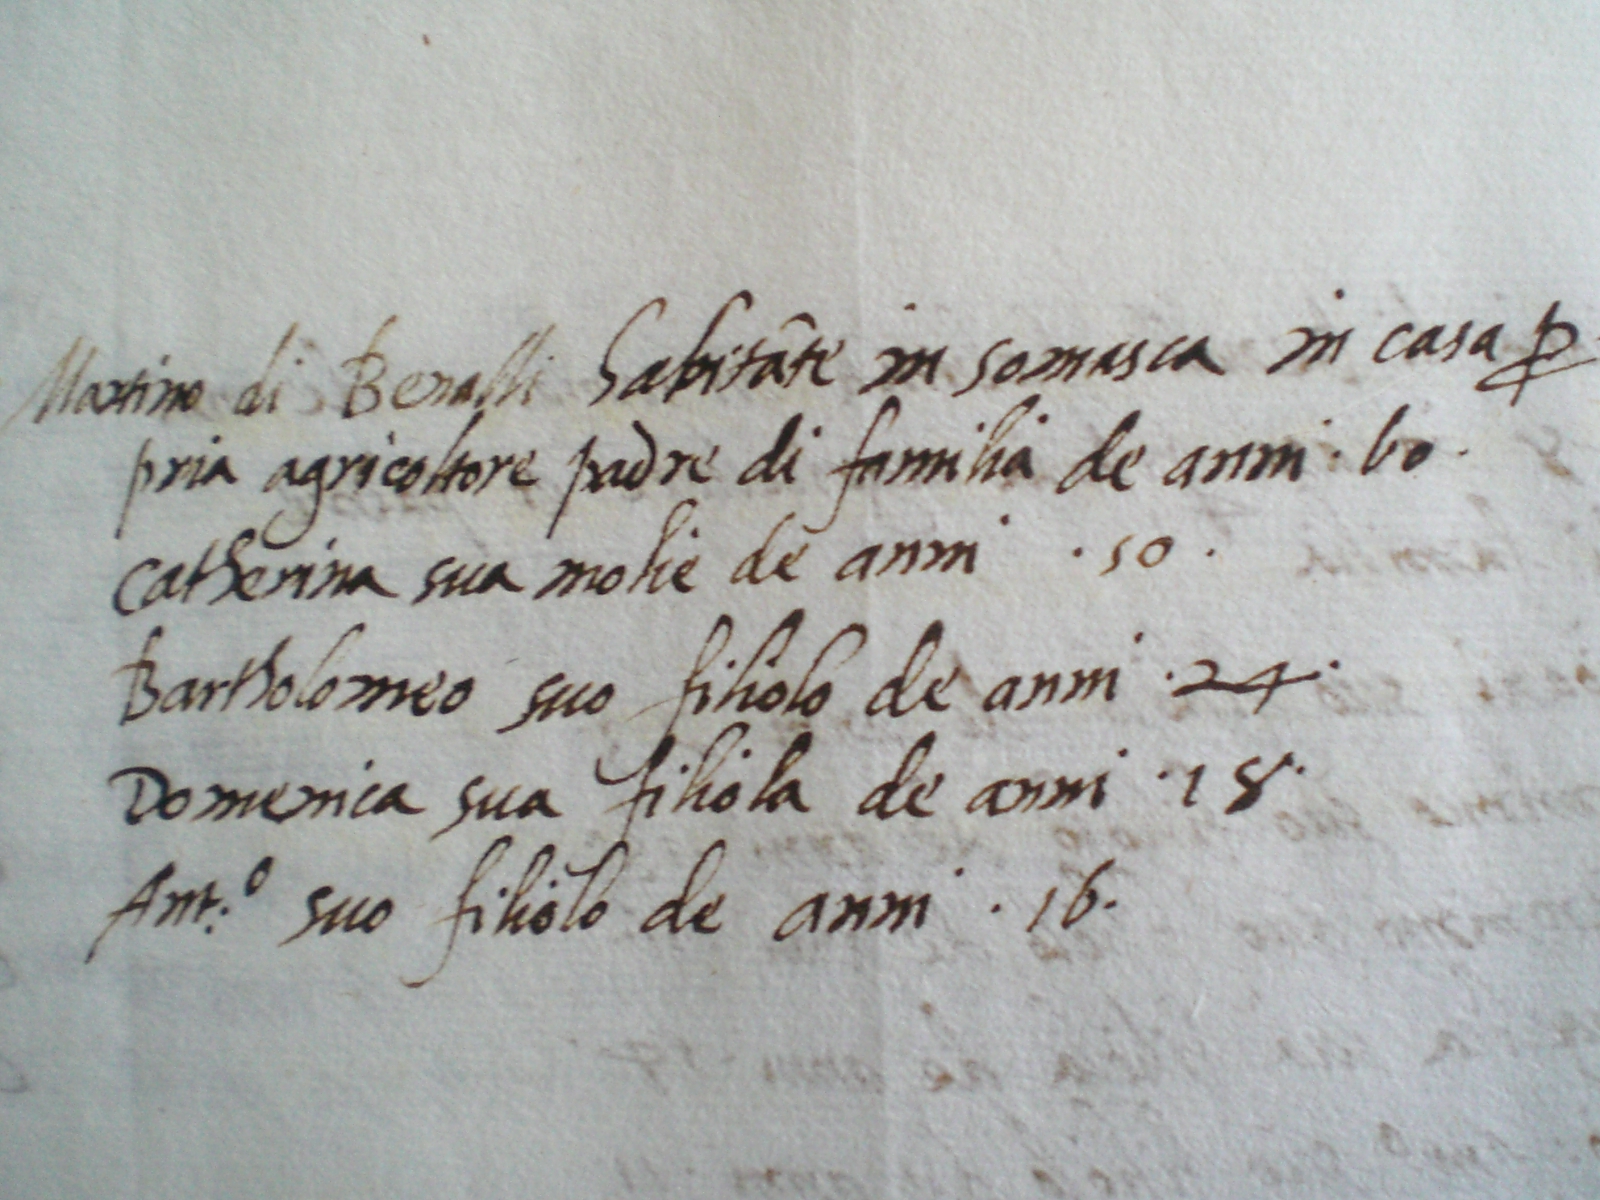 Martino di Benalli habitāte in somasca in casa p
pria agricoltore padre di familia de anni · 60 ·
Catherina sua molie de anni · 50 ·
Bartholomeo suo filiolo de anni · 24 ·
Domenica sua filiola de anni · 18 ·
Ant.º suo filiolo de anni · 16 ·